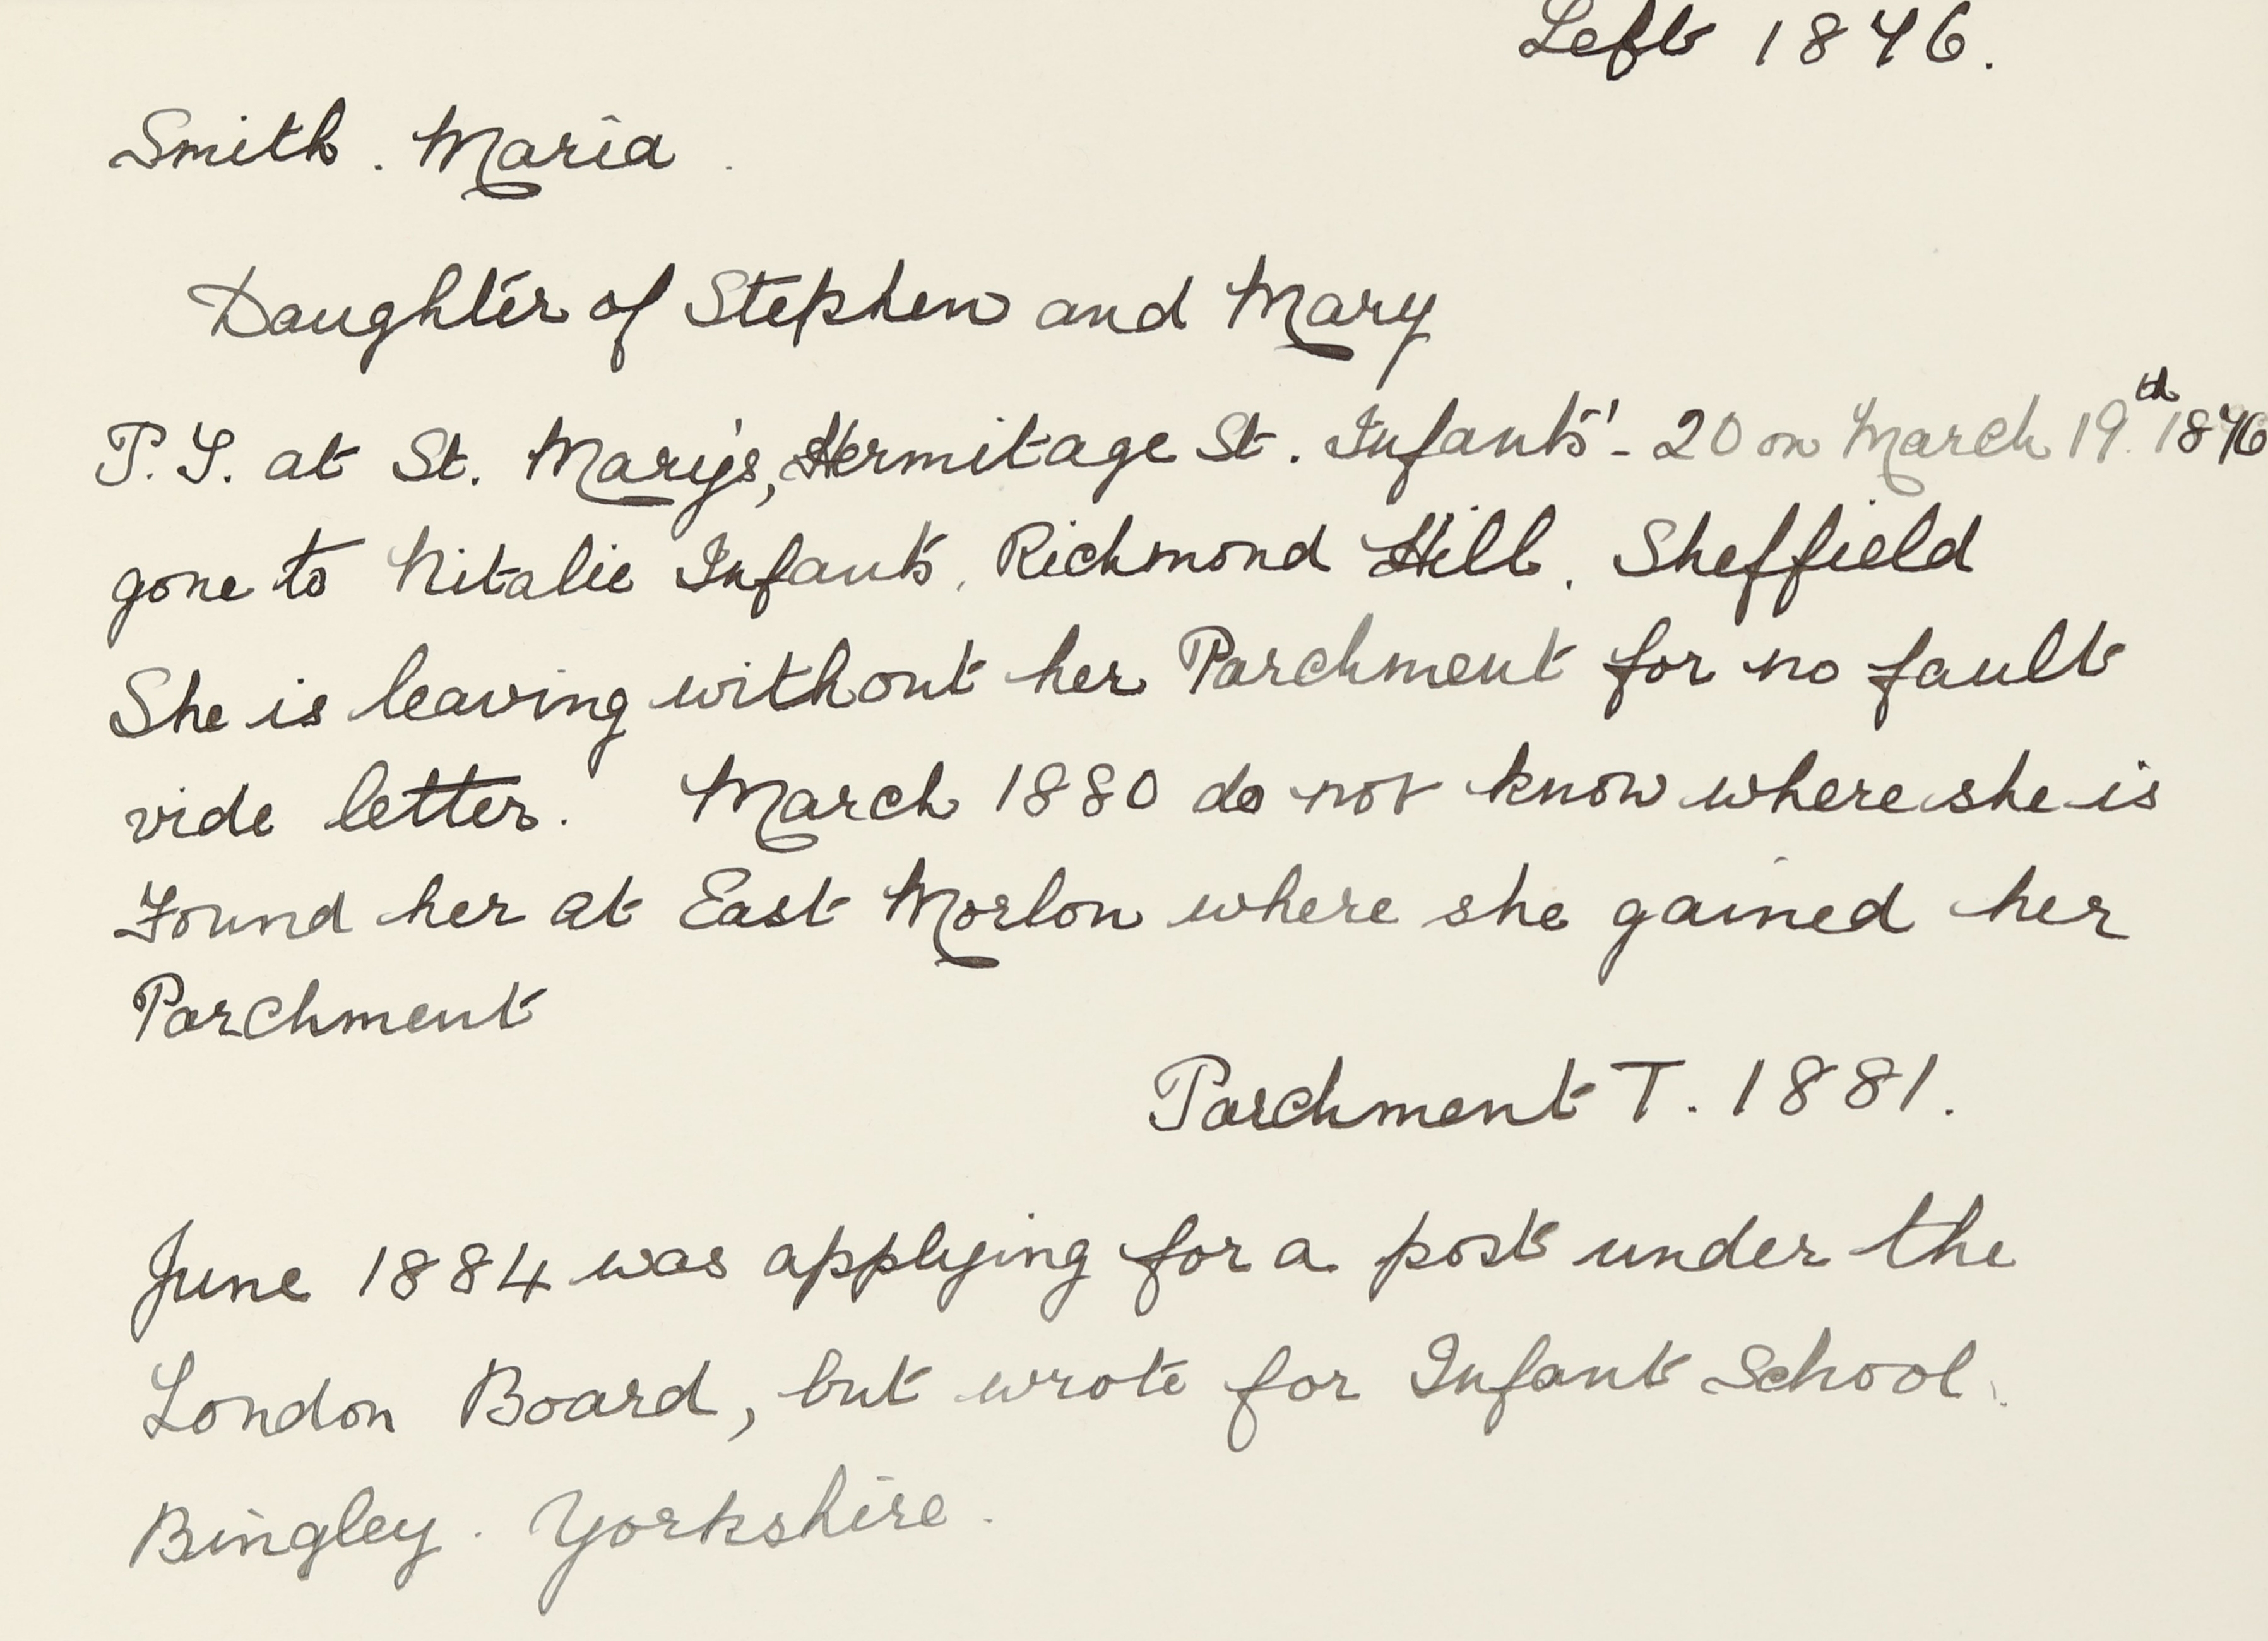 Left 1846.
Smith. Maria.
Daughter of Stephen and Mary
P.T. at St. Mary's, Hermitage St. Infants' - 20 on March 19th 1846
gone to Infants, Richmond Hill. Sheffield
She is leaving without her Parchment for no fault
vide letter. March 1880 do not know where she is
Found her at East Morton where she gained her
Parchment
Parchment T. 1881.
June 1884 was applying for a post under the
London Board, but wrote for Infant School.
Bingley. Yorkshire.